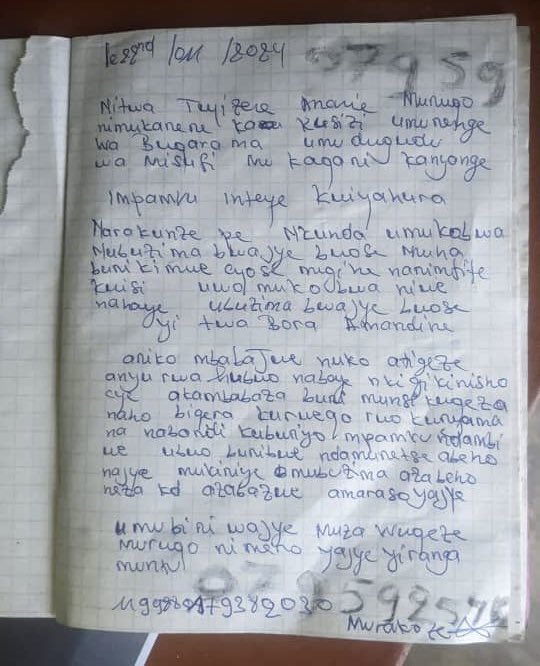 le 22nd /04 /2024 07959
Nitwa Tuyizere Ananie Murugo
numukanene Kusizi umunenge
wa Bugarama umudugudu
wa Misufi mu kagari kanyonge
Impamvu inteye Kwiyahura
Narakunze pe Nkunda umukobwa
Mubuzima bwajye bwose Muha
buri kimwe cyose mugihe nanimfite
kwisi uwo mukobwa niwe
nahaye ubuzima bwajye bwose
yi twa Bora Amandine
ariko mbabajwe nuko atigeze
anyurwa ahubwo nabaye nkigikinisho
cye akambabaza buri munsi kugeza
naho bigera kuruego rwo kunyama
na nabandi kuburiyo mpamvu ndambi
we ubwo bunibwe ndamuretse abeho
najye mukiniye mubuzima azabeho
neza kd azabazwe amaraso yajye
umubiri wajye muza wugeze
murugo nimero yajye yiranga
muntu
079592576
Murakoze